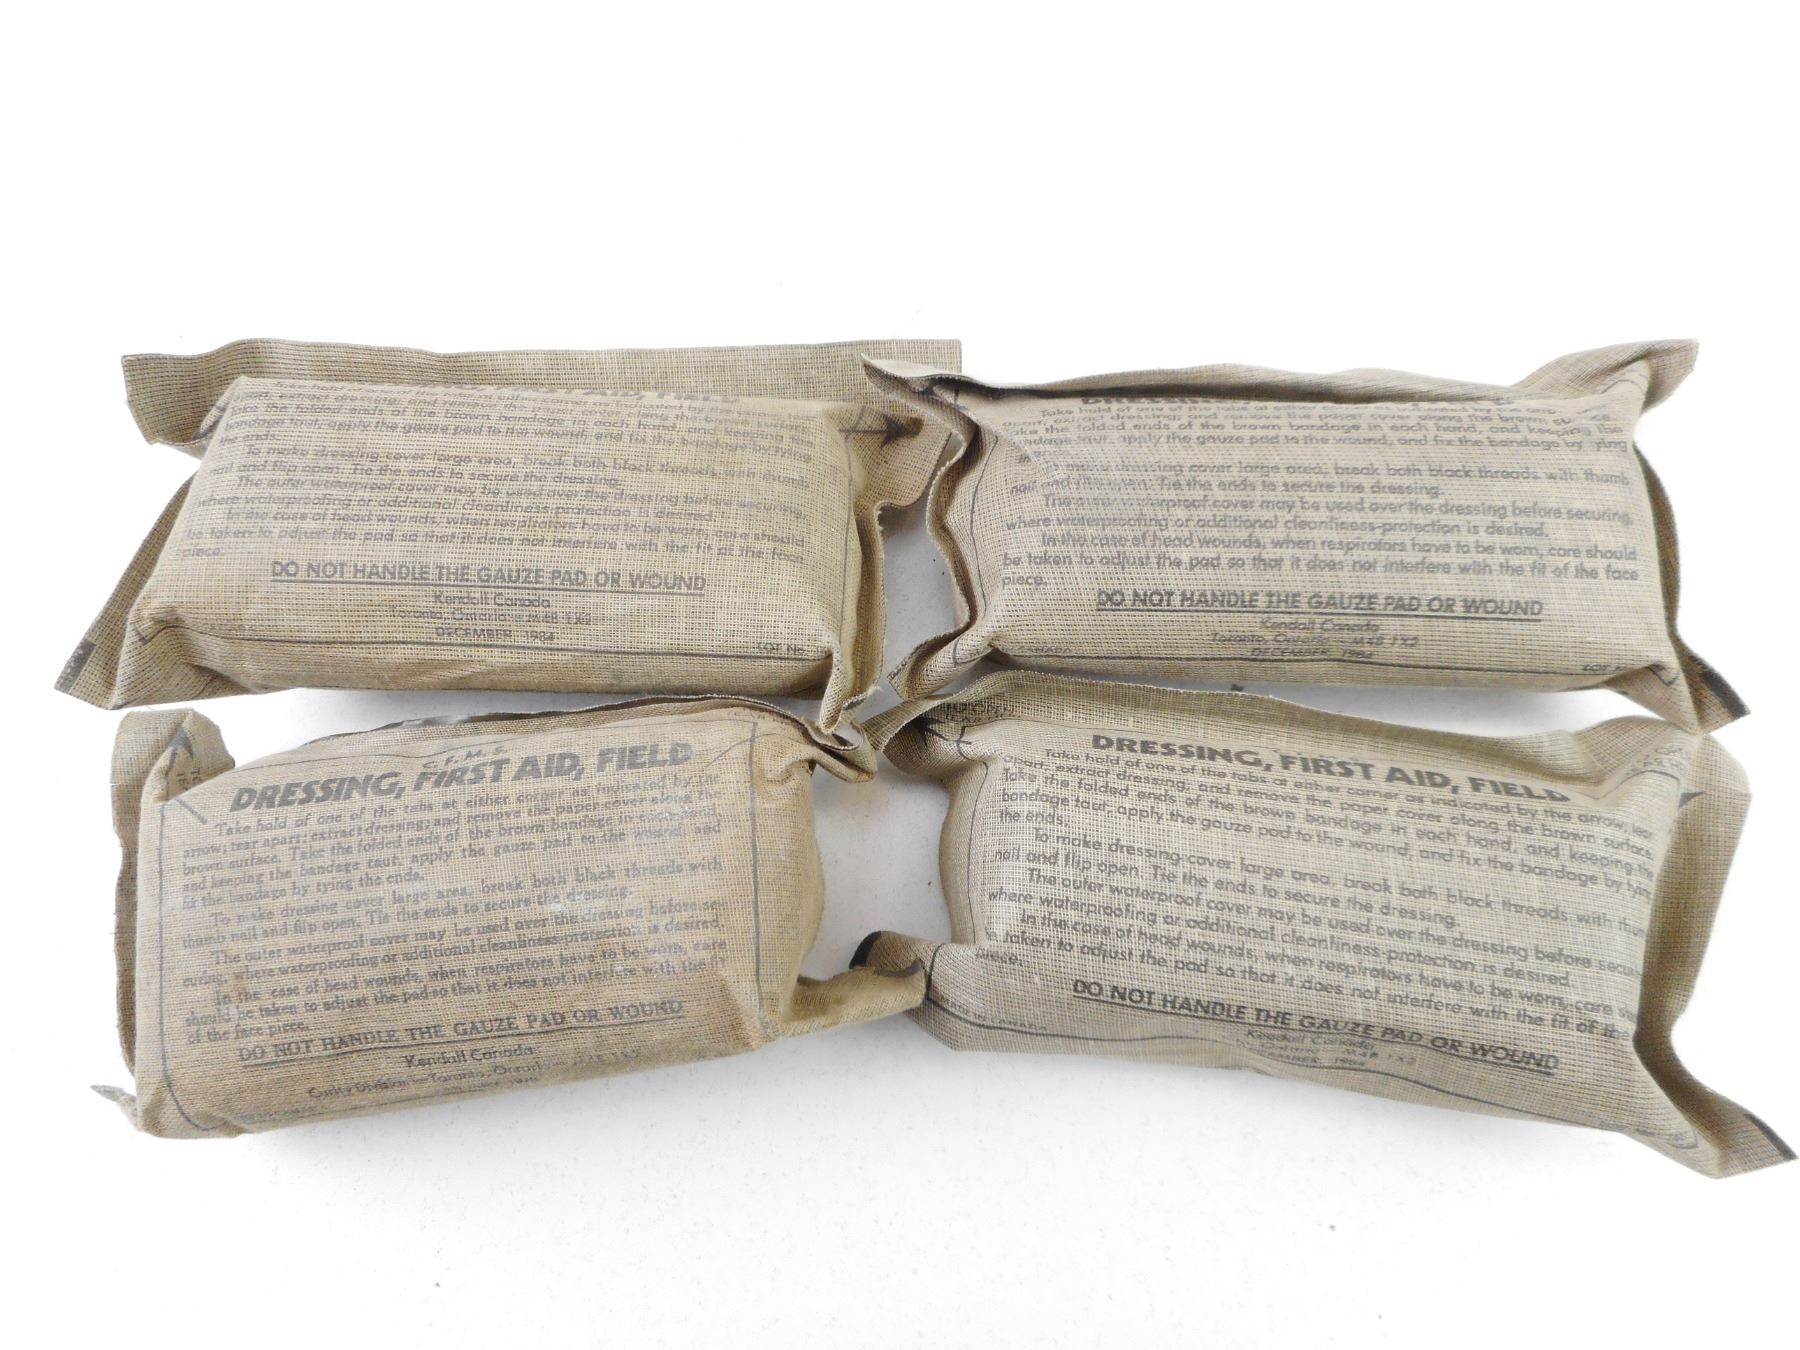 FIRST AID, FIELD
Take the folded ends of the brown bandage in each hand, and keeping the
bandage taut, apply the gauze pad to the wound, and fix the bandage by tying
the ends.
To make dressing cover large area, break both black threads with thumb
nail and flip open. Tie the ends to secure the dressing.
The outer waterproof cover may be used over the dressing before securing,
where waterproofing or additional cleanliness-protection is desired.
In the case of head wounds, when respirators have to be worn, care should
be taken to adjust the pad so that it does not interfere with the fit of the face
piece.
DO NOT HANDLE THE GAUZE PAD OR WOUND
Kendall Canada
Toronto, Ontario — M4B 1X2
DECEMBER 1984
LOT No.
Take hold of one of the tabs at either corner as indicated by the
apart, extract dressing, and remove the paper cover along the brown
Take the folded ends of the brown bandage in each hand, and keeping the
bandage taut, apply the gauze pad to the wound, and fix the bandage by tying
To make dressing cover large area, break both black threads with thumb
nail and flip open. Tie the ends to secure the dressing.
The outer waterproof cover may be used over the dressing before securing,
where waterproofing or additional cleanliness-protection is desired.
In the case of head wounds, when respirators have to be worn, care should
be taken to adjust the pad so that it does not interfere with the fit of the face
piece.
DO NOT HANDLE THE GAUZE PAD OR WOUND
Kendall Canada
Toronto, Ontario — M4B 1X2
DECEMBER, 1984
CANADA
LOT
C.F.M.S.
DRESSING, FIRST AID, FIELD
Take hold of one of the tabs at either corner as indicated by the
arrow; tear apart; extract dressing; and remove the paper cover along the
brown surface. Take the folded ends of the brown bandage in each hand,
and keeping the bandage taut, apply the gauze pad to the wound, and
fix the bandage by tying the ends.
To make dressing cover large area, break both black threads with
thumb nail and flip open. Tie the ends to secure the dressing.
The outer waterproof cover may be used over the dressing before se-
curing, where waterproofing or additional cleanliness-protection is desired.
In the case of head wounds, when respirators have to be worn, care
should be taken to adjust the pad so that it does not interfere with the fit
of the face piece.
DO NOT HANDLE THE GAUZE PAD OR WOUND
Kendall Canada
Curity Division — Toronto, Ontario M4B 1X2
DRESSING, FIRST AID, FIELD
Take hold of one of the tabs at either corner as indicated by the arrow, tear
apart, extract dressing, and remove the paper cover along the brown surface.
Take the folded ends of the brown bandage in each hand, and keeping the
bandage taut, apply the gauze pad to the wound, and fix the bandage by tying
the ends.
To make dressing cover large area, break both black threads with thumb
nail and flip open. Tie the ends to secure the dressing.
The outer waterproof cover may be used over the dressing before
where waterproofing or additional cleanliness-protection is desired.
In the case of head wounds, when respirators have to be worn, care
taken to adjust the pad so that it does not interfere with the fit of the
DO NOT HANDLE THE GAUZE PAD OR WOUND
Kendall Canada
M4B 1X2
DECEMBER, 1984
CANADA